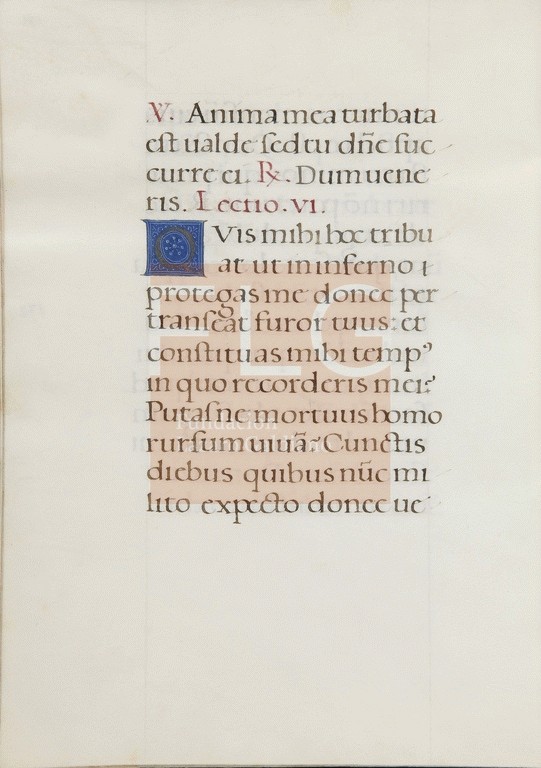 V. Anima mea turbata
eſt ualde ſed tu dñe ſuc
curre ei. ℞. Dum uene
ris. Lectio. vi.
QVis mihi hoc tribu
at ut in inferno
protegas me donec per
tranſeat furor tuus: et
conſtituas mihi temp⁹
in quo recorderis mei?
Putaſne mortuus homo
rurſum uiuãt? Cunctis
diebus quibus nũc mi
lito expecto donec ue
FLG
Fundación